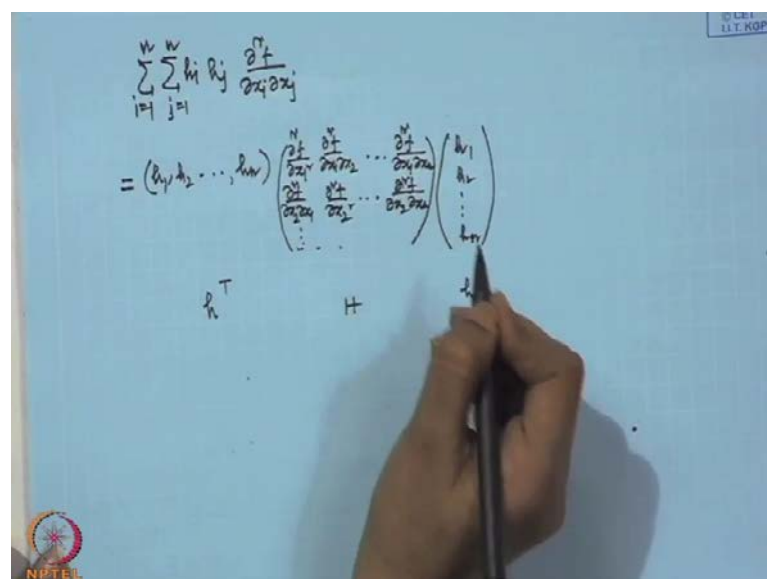 © CET
I.I.T. KGP
n n
∑ ∑ hi hj ∂²f
i=1 j=1 ∂xi∂xj
= (h1, h2 ..., hn) ( ∂²f/∂x1² ∂²f/∂x1∂x2 ... ∂²f/∂x1∂xn ) ( h1
∂²f/∂x2∂x1 ∂²f/∂x2² ... ∂²f/∂x2∂xn h2
⋮ . . ⋮
hn )
h^T H h
NPTEL